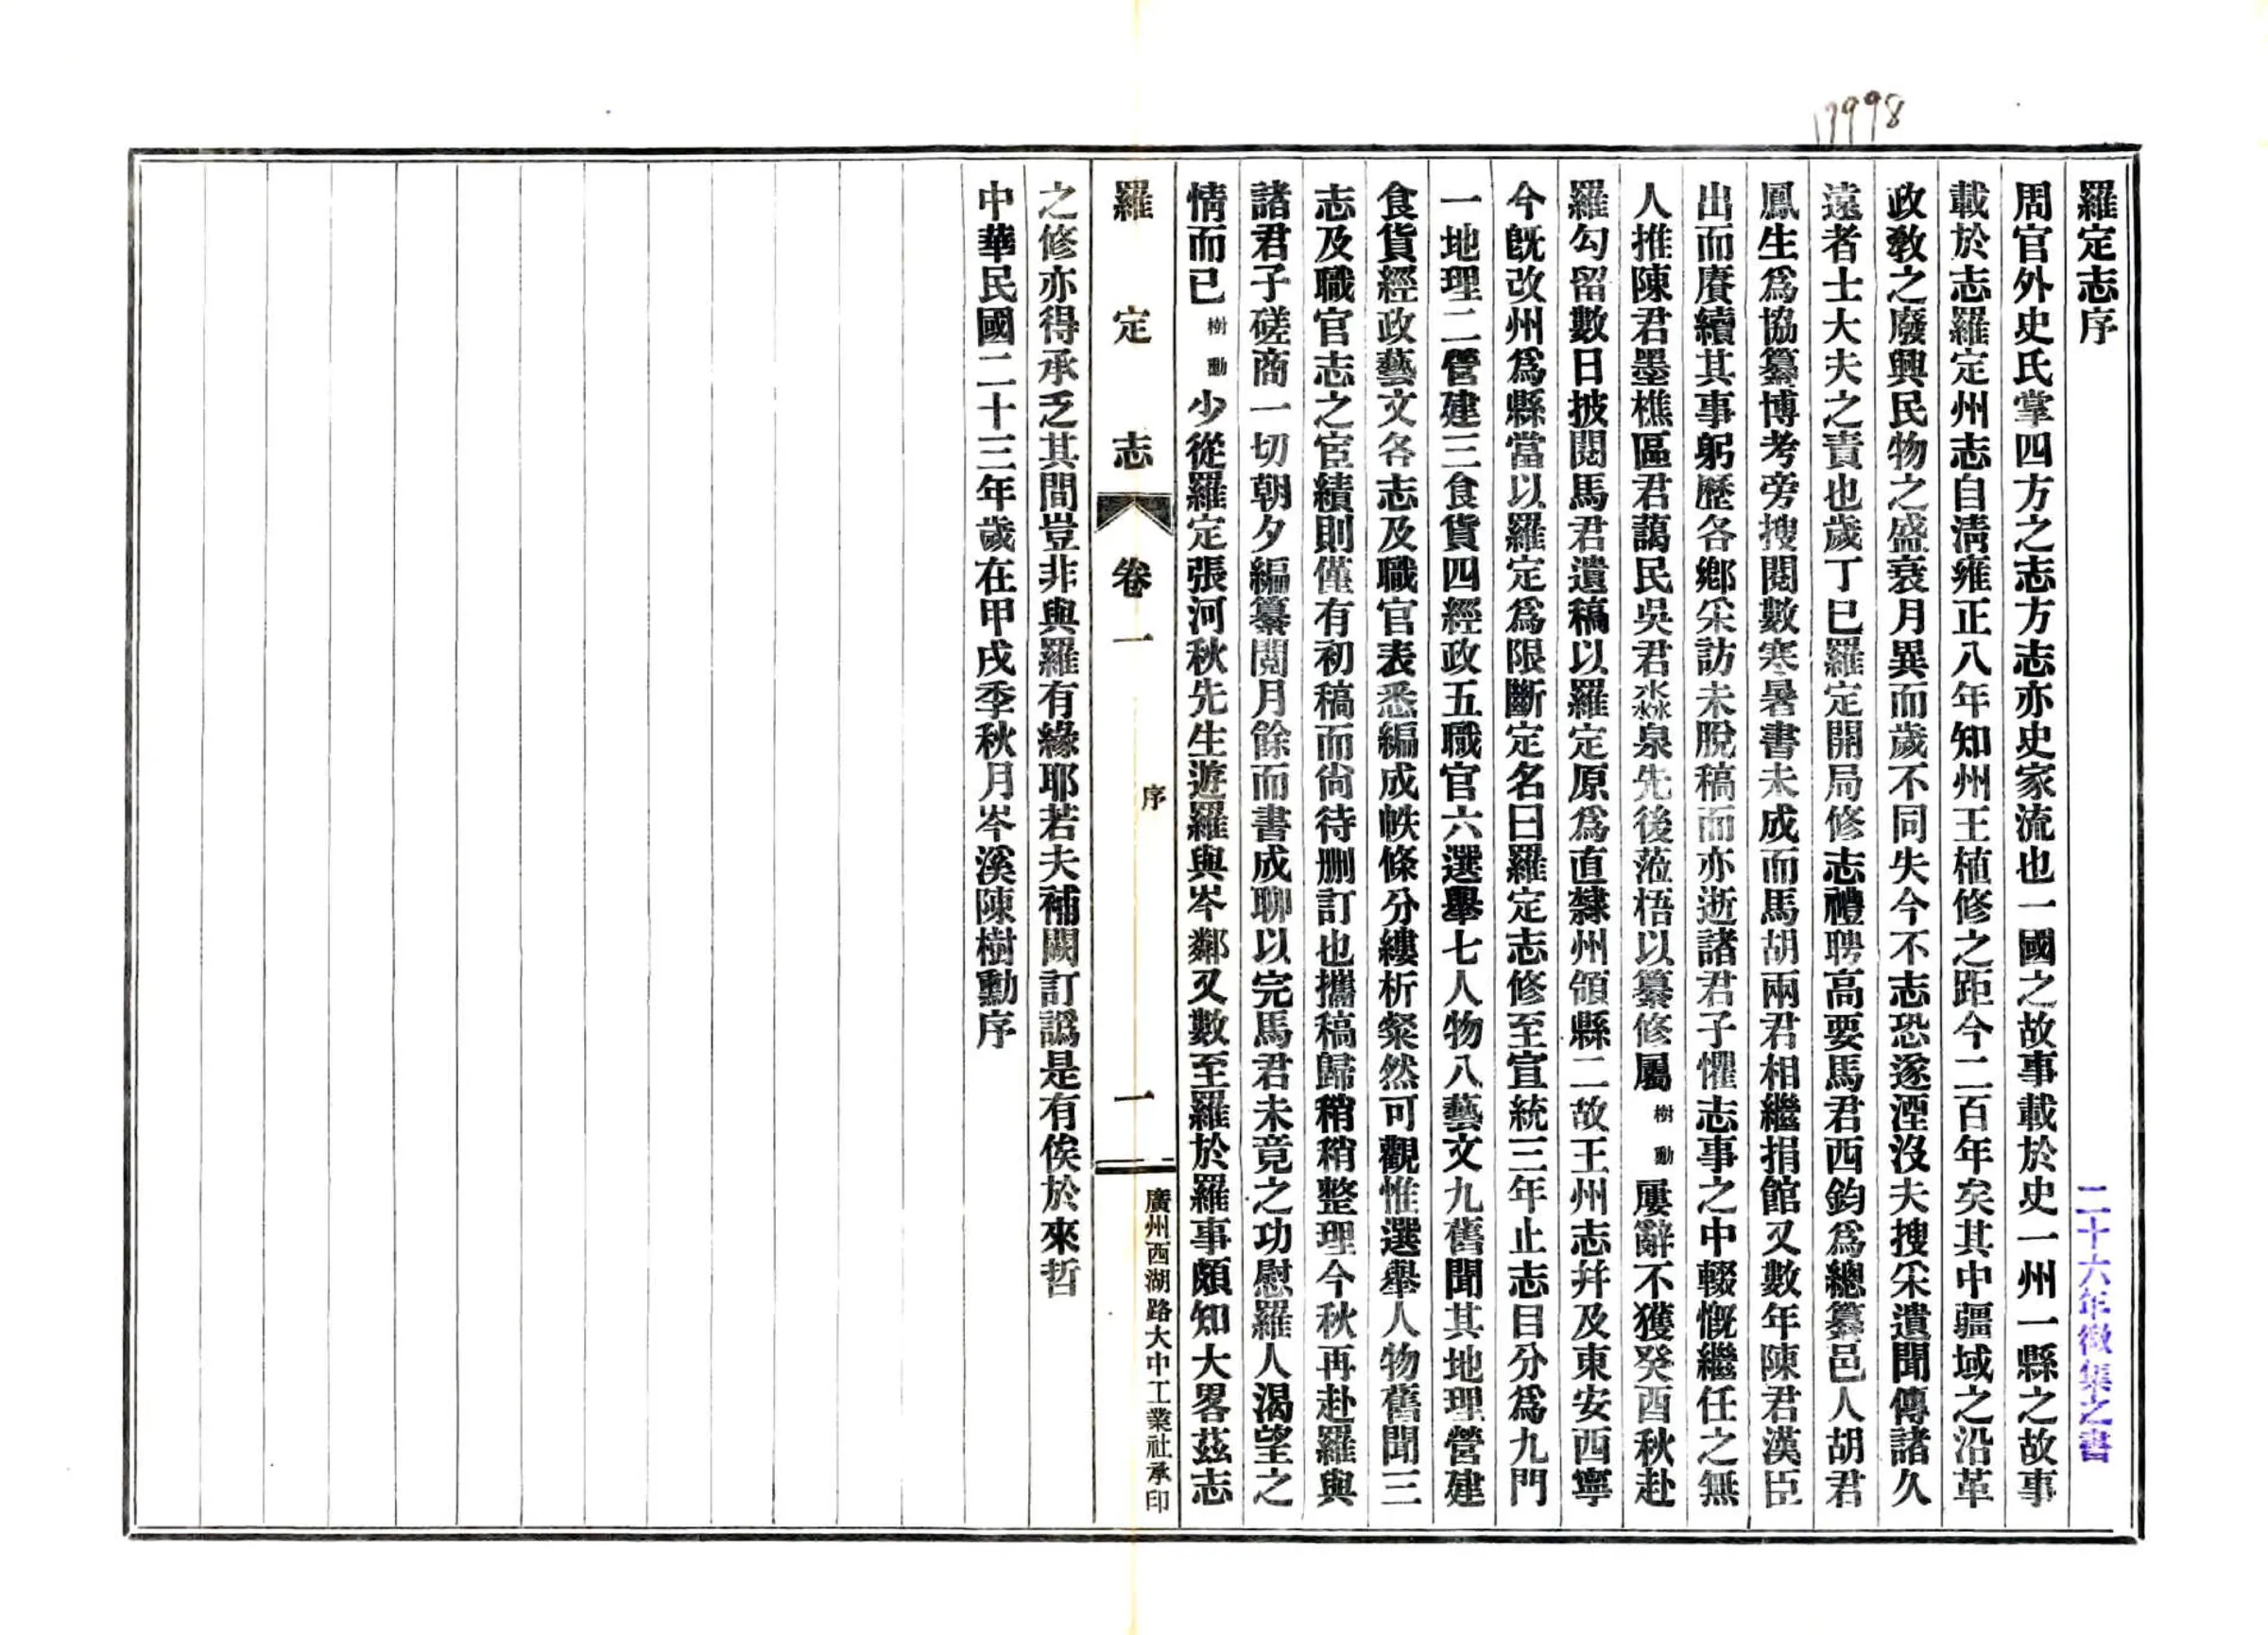 17998
羅定志序
二十六年徵集之書
周官外史氏掌四方之志方志亦史家流也一國之故事載於史一州一縣之故事
載於志羅定州志自淸雍正八年知州王植修之距今二百年矣其中疆域之沿革
政敎之廢興民物之盛衰月異而歲不同失今不志恐遂湮沒夫搜采遺聞傳諸久
遠者士大夫之責也歲丁巳羅定開局修志禮聘高要馬君西鈞爲總纂邑人胡君
鳳生爲協纂博考旁搜閱數寒暑書未成而馬胡兩君相繼捐館又數年陳君漢臣
出而賡續其事躬歷各鄉采訪未脫稿而亦逝諸君子懼志事之中輟慨繼任之無
人推陳君墨樵區君藹民吳君淼泉先後蒞梧以纂修屬樹勳屢辭不獲癸酉秋赴
羅勾留數日披閱馬君遺稿以羅定原爲直隸州領縣二故王州志幷及東安西寧
今旣改州爲縣當以羅定爲限斷定名曰羅定志修至宣統三年止志目分爲九門
一地理二營建三食貨四經政五職官六選舉七人物八藝文九舊聞其地理營建
食貨經政藝文各志及職官表悉編成帙條分縷析粲然可觀惟選舉人物舊聞三
志及職官志之宦績則僅有初稿而尙待删訂也攜稿歸稍稍整理今秋再赴羅與
諸君子磋商一切朝夕編纂閱月餘而書成聊以完馬君未竟之功慰羅人渴望之
情而已樹勳少從羅定張河秋先生遊羅與岑鄰又數至羅於羅事頗知大畧茲志
羅定志 卷一 序 一 廣州西湖路大中工業社承印
之修亦得承乏其間豈非與羅有緣耶若夫補闕訂譌是有俟於來哲
中華民國二十三年歲在甲戌季秋月岑溪陳樹勳序